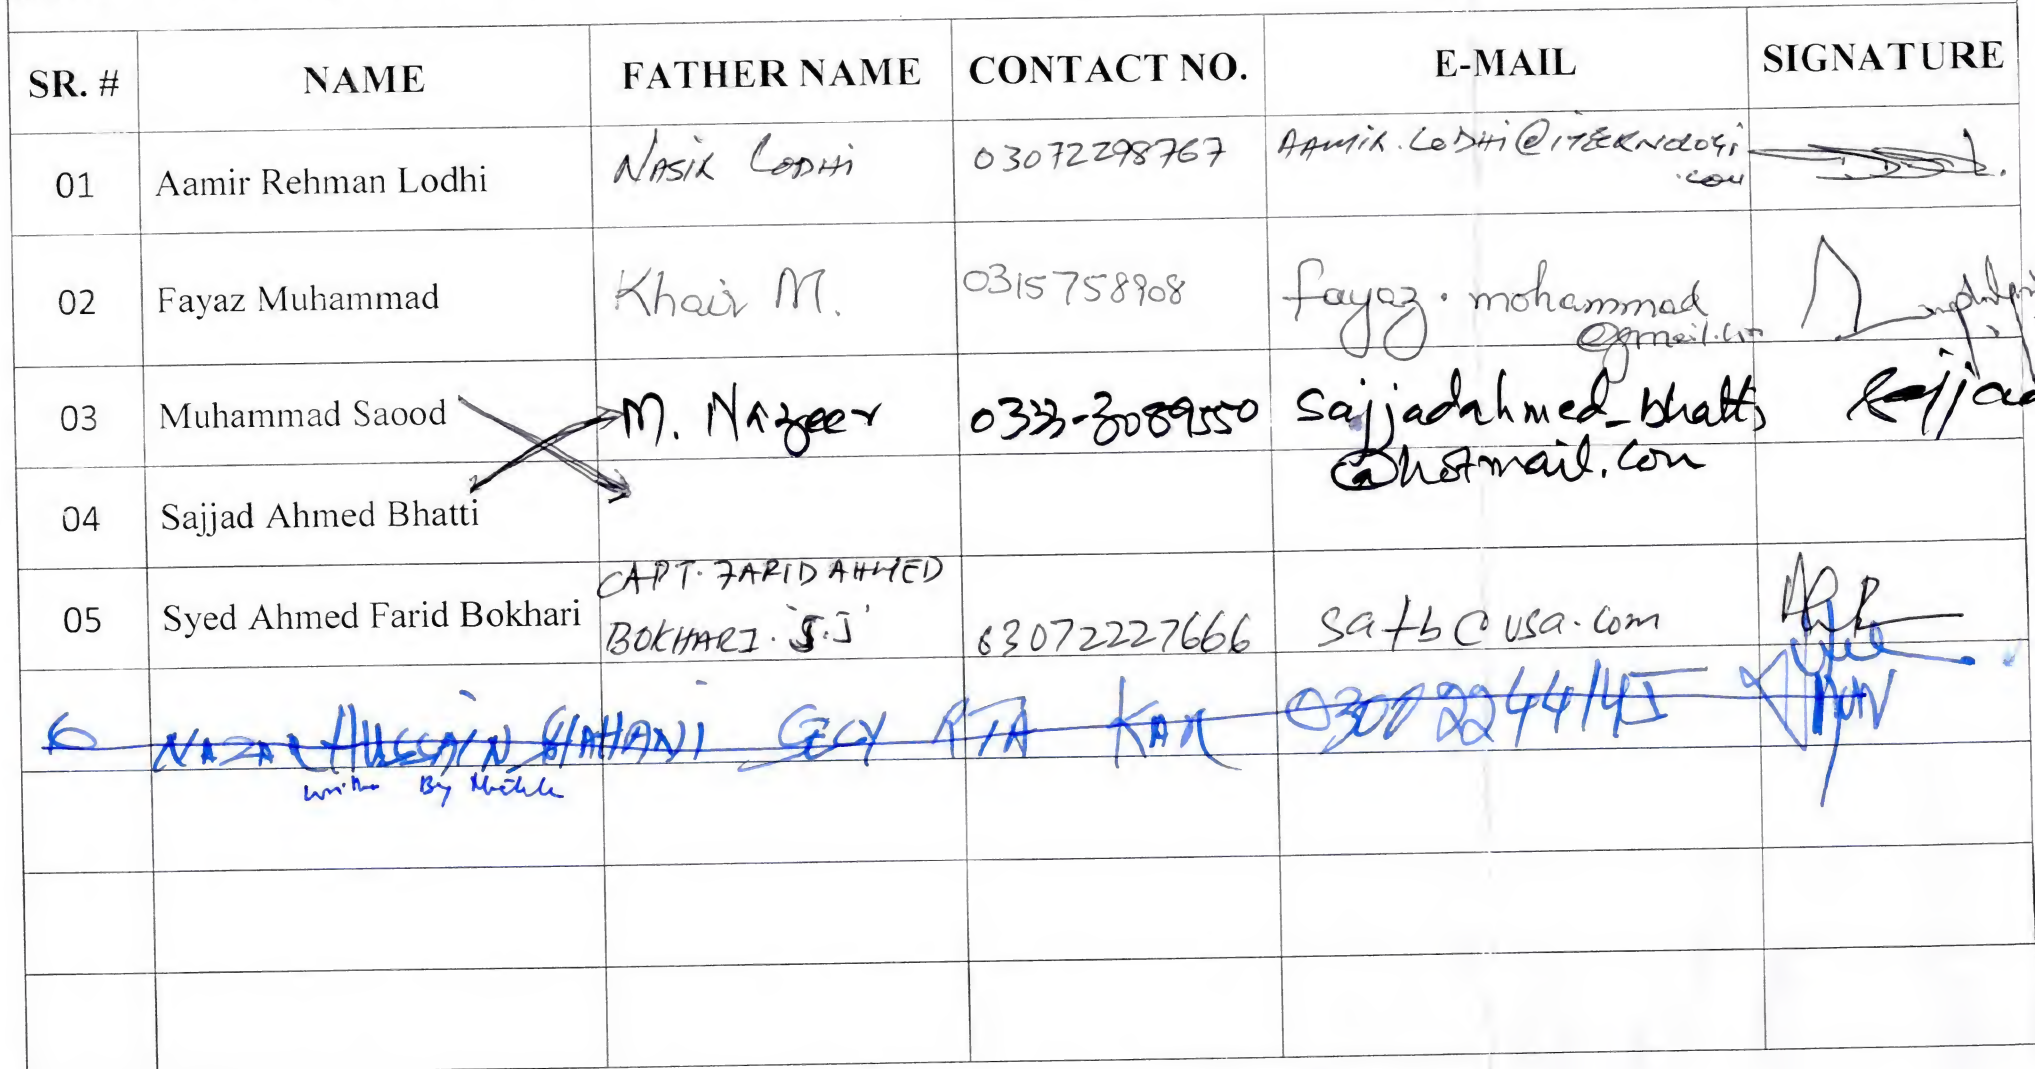 SR. # NAME FATHER NAME CONTACT NO. E-MAIL SIGNATURE
01 Aamir Rehman Lodhi NASIR LODHI 03072298767 AAMIR.LODHI@ITEKNOLOGI
.com
02 Fayaz Muhammad Khair M. 0315758908 fayaz.mohammad
@gmail.com
03 Muhammad Saood M. Nazeer 0333-3089550 sajjadahmed_bhatti Sajjad
@hotmail.com
04 Sajjad Ahmed Bhatti
05 Syed Ahmed Farid Bokhari CAPT. FARID AHMED
BOKHARI. S.J 03072227666 safb@usa.com
6 NAZAR HUSSAIN SHAHANI SECY RTA KAR 03002244145
written By Mistake